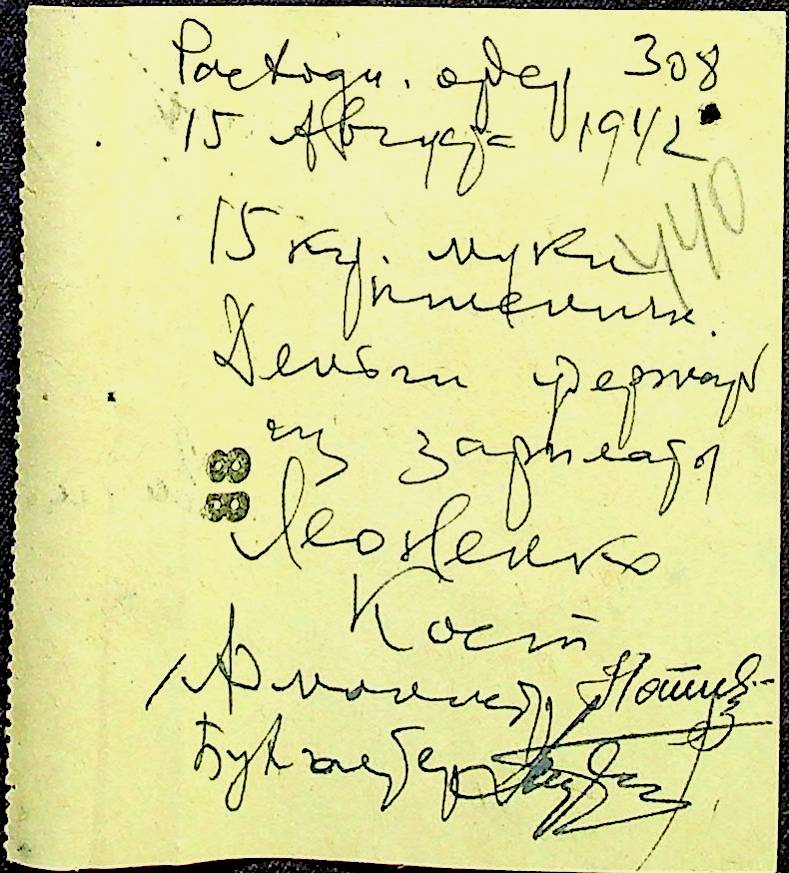 Расходн. ордер 308
15 Августа 1942
440
15 кг. муки
пшеничн.
Деньги удержать
из зарплаты
Леоненко
Конст
Бухгалтер
88